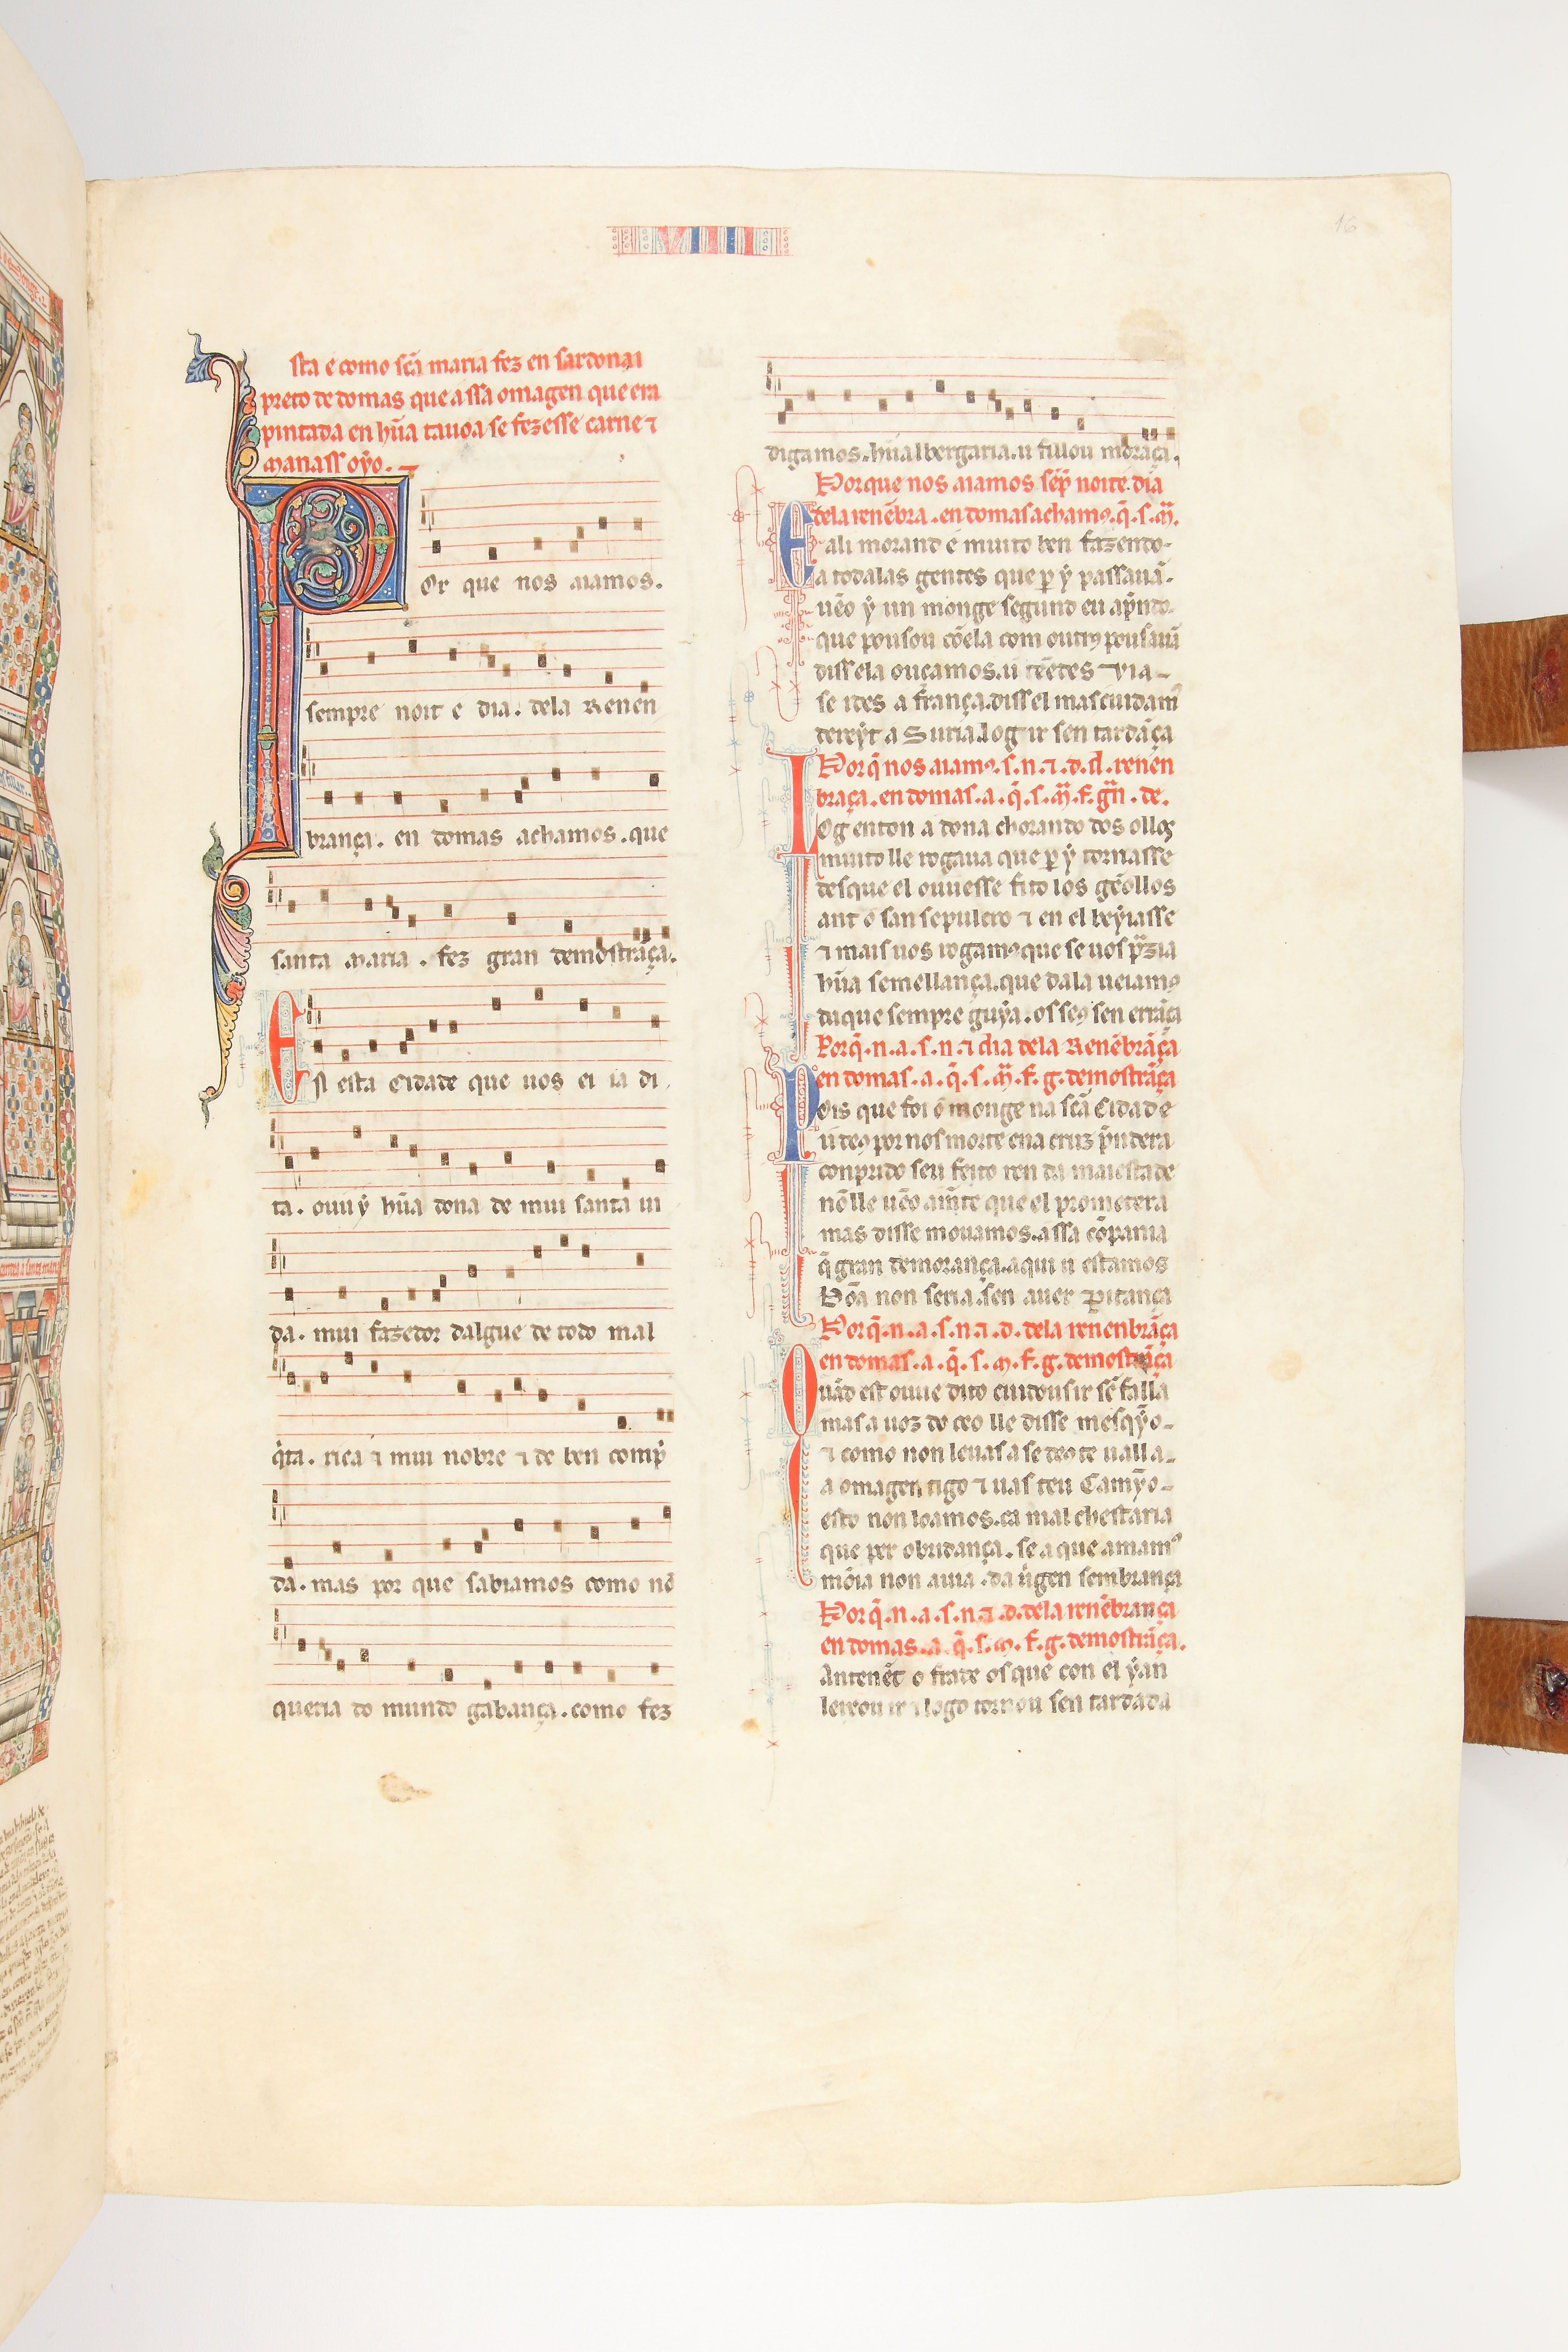 VIIII
16
sta é como scã maria fez en sardonai
preto de domas que a ssa omagen que era
pintada en hũa tauoa se fezesse carne ⁊
manass oyo.
Or que nos aiamos.
sempre noit e dia. dela Renen
brança. en domas achamos. que
santa Maria. fez gran demostrãça.
En esta Cidade que uos ei ia di
ta. ouu ẏ hũa dona de mui santa ui
da. mui fazedor dalgue de todo mal
q̇ta. rica ⁊ mui nobre ⁊ de ben comp̃
da. mas por que sabiamos como nõ
queria do mundo gabança. como fez
digamos. hũ albergaria. u fillou morãça.
Porque nos aiamos sẽp̃ noite. dia
dela renẽbra. en domas achamꝯ. q̃. s. m̃.
E ali morand e muito ben fazendo
a todalas gentes que ꝑ ẏ passauã.
uẽo ẏ un monge segund eu ap̃ndo.
que pousou cõela com outrꝯ pousauã
diss ela ouçamos. u tẽedes uia
se ides a frança. diss el mas cuidamꝯ
dereyt a Suria. log ir sen tardãça
Porq̃ nos aiamꝯ. s. n. ⁊. d. d. renen
braça. en domas. a. q̃. s. m̃. f. gñ. de.
Log enton a dona chorando dos ollos
muito lle rogaua que ꝑ ẏ tornasse
desque el ouuesse fito los gẽollos
ant o san sepulcro ⁊ en el beyiasse
⁊ mais uos rogamꝯ que se uos p̃zia
hũa semellança. que dala ueiamꝯ
duque sempre guẏa. os seꝯ sen errãça
Porq̃. n. a. s. n. ⁊ dia dela Renẽbrãça
en domas. a. q̃. s. m̃. f. g. demostrãça
Pois que foi o monge na scã Cidade
u deꝯ por nos morte ena cruz p̃ndera
conprido seu feito ren da maiestade
nõ lle uẽo a mẽte que el prometera
mas disse mouamos. a ssa cõpania
q̃ gran demorança. aqui u estamos
Bõa non seria. sen auer pitança
Porq̃. n. a. s. n. ⁊. d. dela renenbrãça
en domas. a. q̃. s. m. f. g. demostrãça
Quãd est ouue dito cuidous ir sẽ falla
mas a uoz do ceo lle disse mesqỹo
⁊ como non leuas a se deꝯ te ualla
a omagen tigo ⁊ uas teu Camỹo
esto non loamos. ca mal chestaria
que per obridança. se a que amamꝯ
mõia non auia. da u̇gen sembrança
Porq̃. n. a. s. n. ⁊. d. dela renẽbrança
en domas. a. q̃. s. m. f. g. demostrãça.
Mantenẽt o frade os que con el ẏan
leixou ir ⁊ logo tornou sen tardada